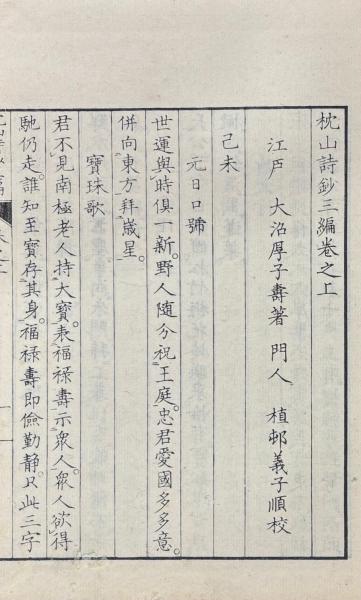 枕山詩鈔三編卷之上
江戸 大沼厚子壽著 門人 植邨義子順校
己未
元日口號
世運與時俱一新。野人隨分祝王庭。忠君愛國多多意。
併向東方拜歲星。
寶珠歌
君不見南極老人持大寶。表福祿壽示衆人。衆人欲得
馳仍走。誰知至寶存其身。福祿壽即儉勤靜。只此三字